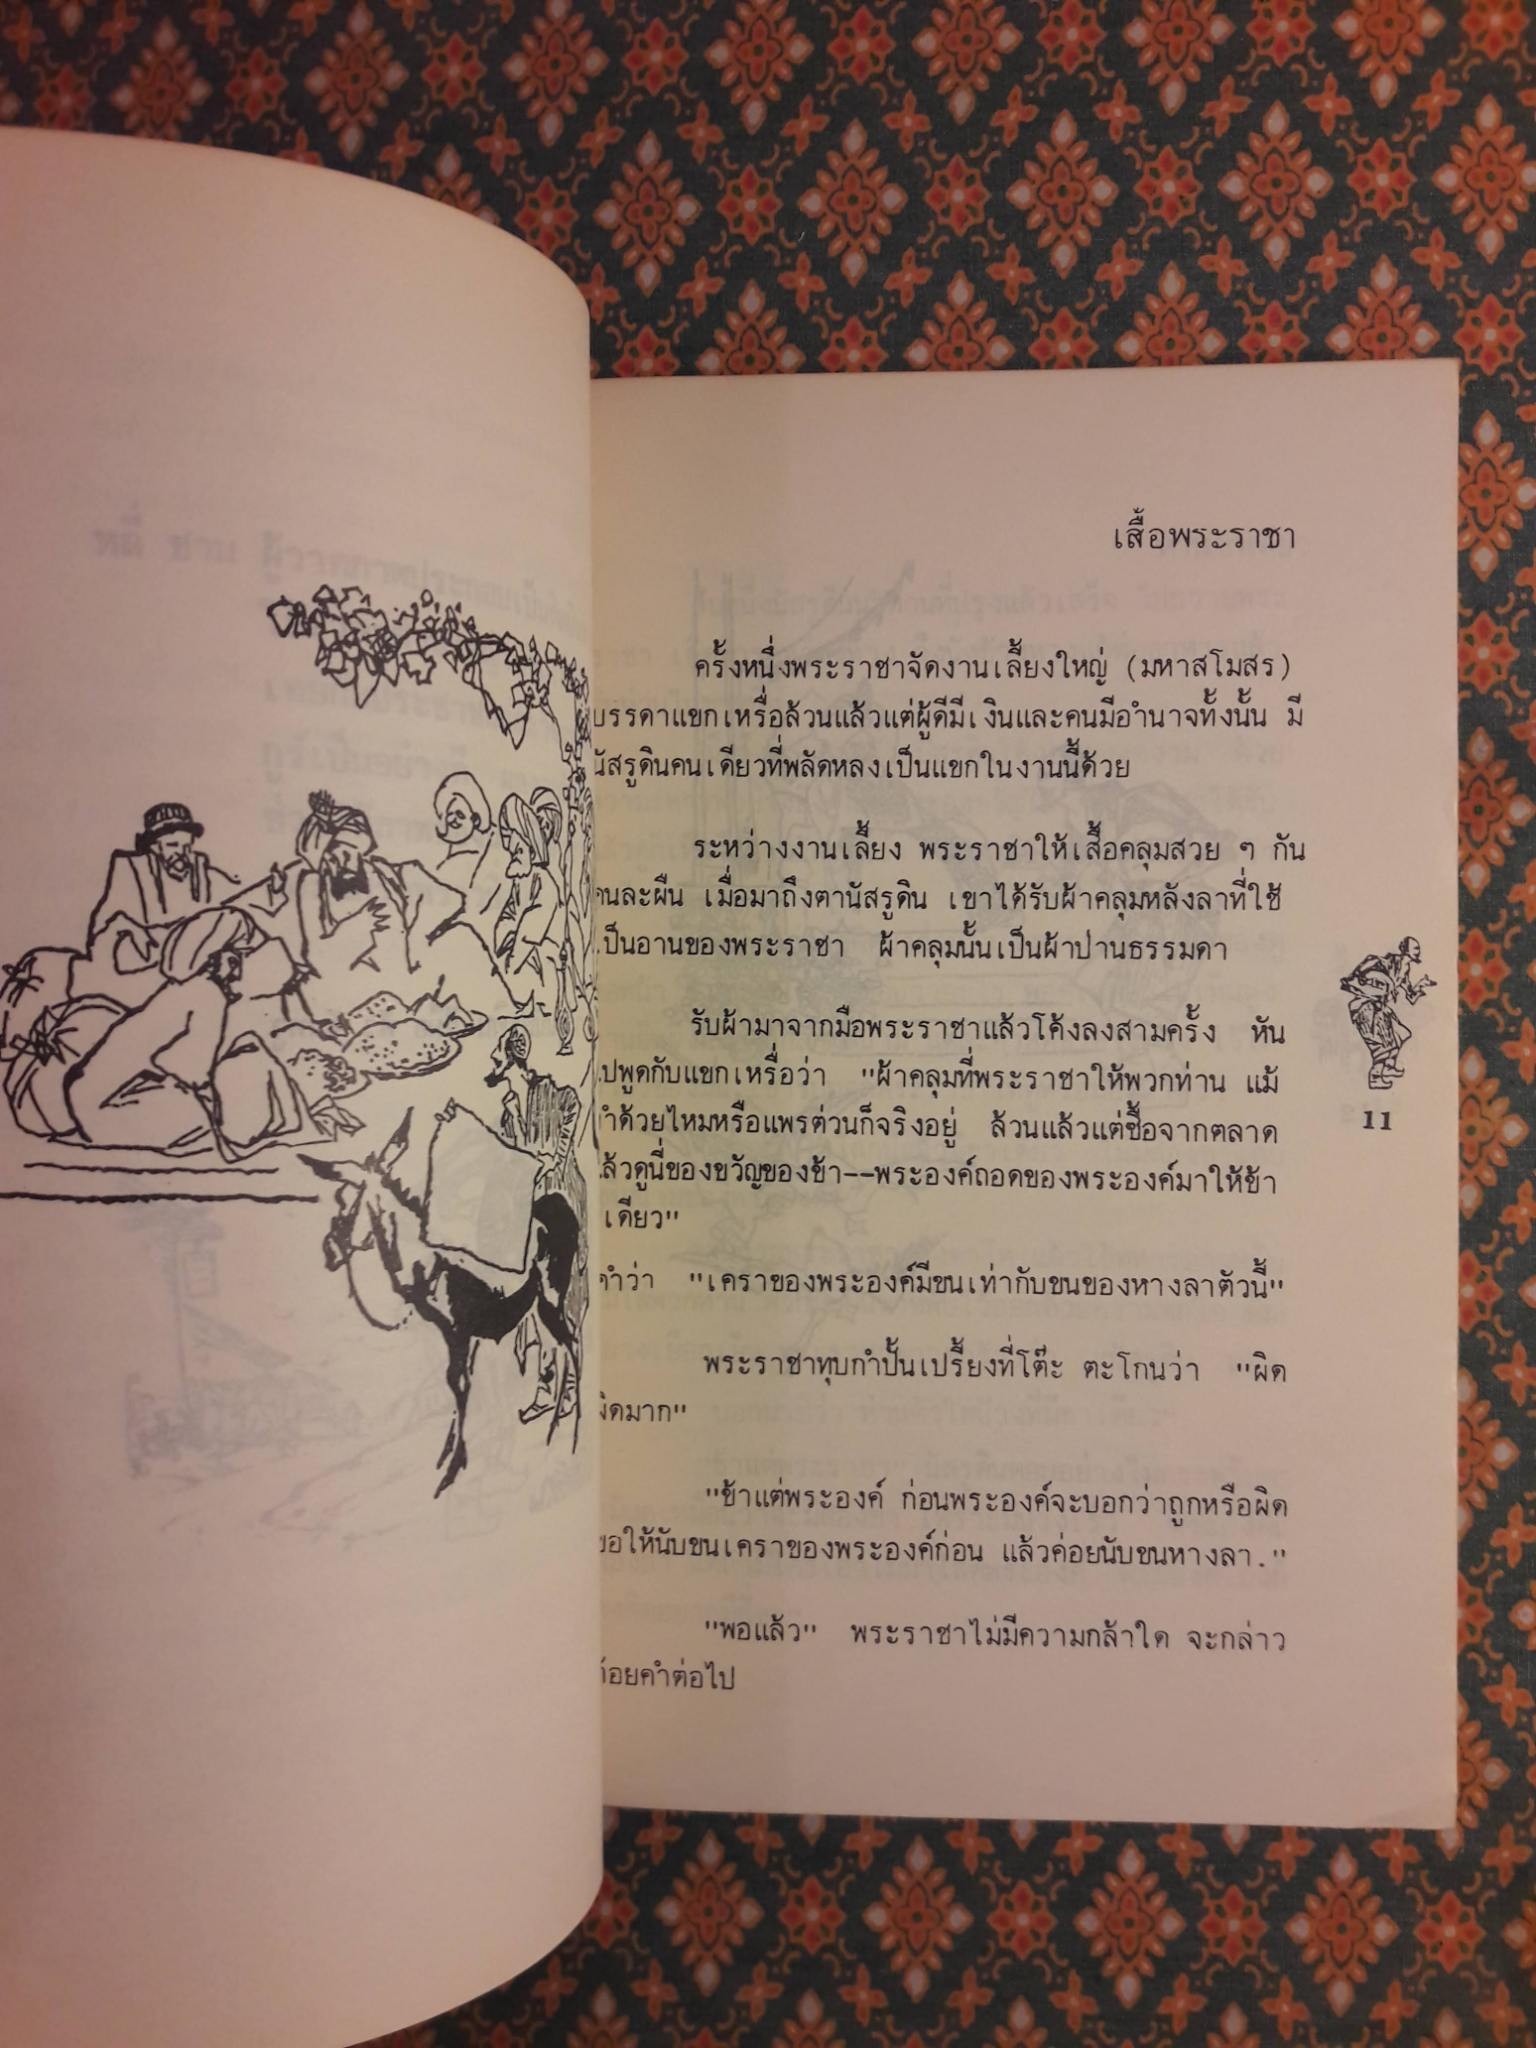 เสื้อพระราชา
ครั้งหนึ่งพระราชาจัดงานเลี้ยงใหญ่ (มหาสโมสร)
บรรดาแขกเหรื่อล้วนแล้วแต่ผู้ดีมีเงินและคนมีอำนาจทั้งนั้น มี
นัสรูดินคนเดียวที่พลัดหลงเป็นแขกในงานนี้ด้วย
ระหว่างงานเลี้ยง พระราชาให้เสื้อคลุมสวย ๆ กัน
คนละผืน เมื่อมาถึงตานัสรูดิน เขาได้รับผ้าคลุมหลังลาที่ใช้
เป็นอานของพระราชา ผ้าคลุมนั้นเป็นผ้าป่านธรรมดา
รับผ้ามาจากมือพระราชาแล้วโค้งลงสามครั้ง หัน
ไปพูดกับแขกเหรื่อว่า "ผ้าคลุมที่พระราชาให้พวกท่าน แม้
ทำด้วยไหมหรือแพรต่วนก็จริงอยู่ ล้วนแล้วแต่ซื้อจากตลาด
แล้วดูนี่ของขวัญของข้า--พระองค์ถอดของพระองค์มาให้ข้า
เดียว"
11
คำว่า "เคราของพระองค์มีขนเท่ากับขนของหางลาตัวนี้"
พระราชาทุบกำปั้นเปรี้ยงที่โต๊ะ ตะโกนว่า "ผิด
ผิดมาก"
"ข้าแต่พระองค์ ก่อนพระองค์จะบอกว่าถูกหรือผิด
ขอให้นับขนเคราของพระองค์ก่อน แล้วค่อยนับขนหางลา."
"พอแล้ว" พระราชาไม่มีความกล้าใด จะกล่าว
ถ้อยคำต่อไป